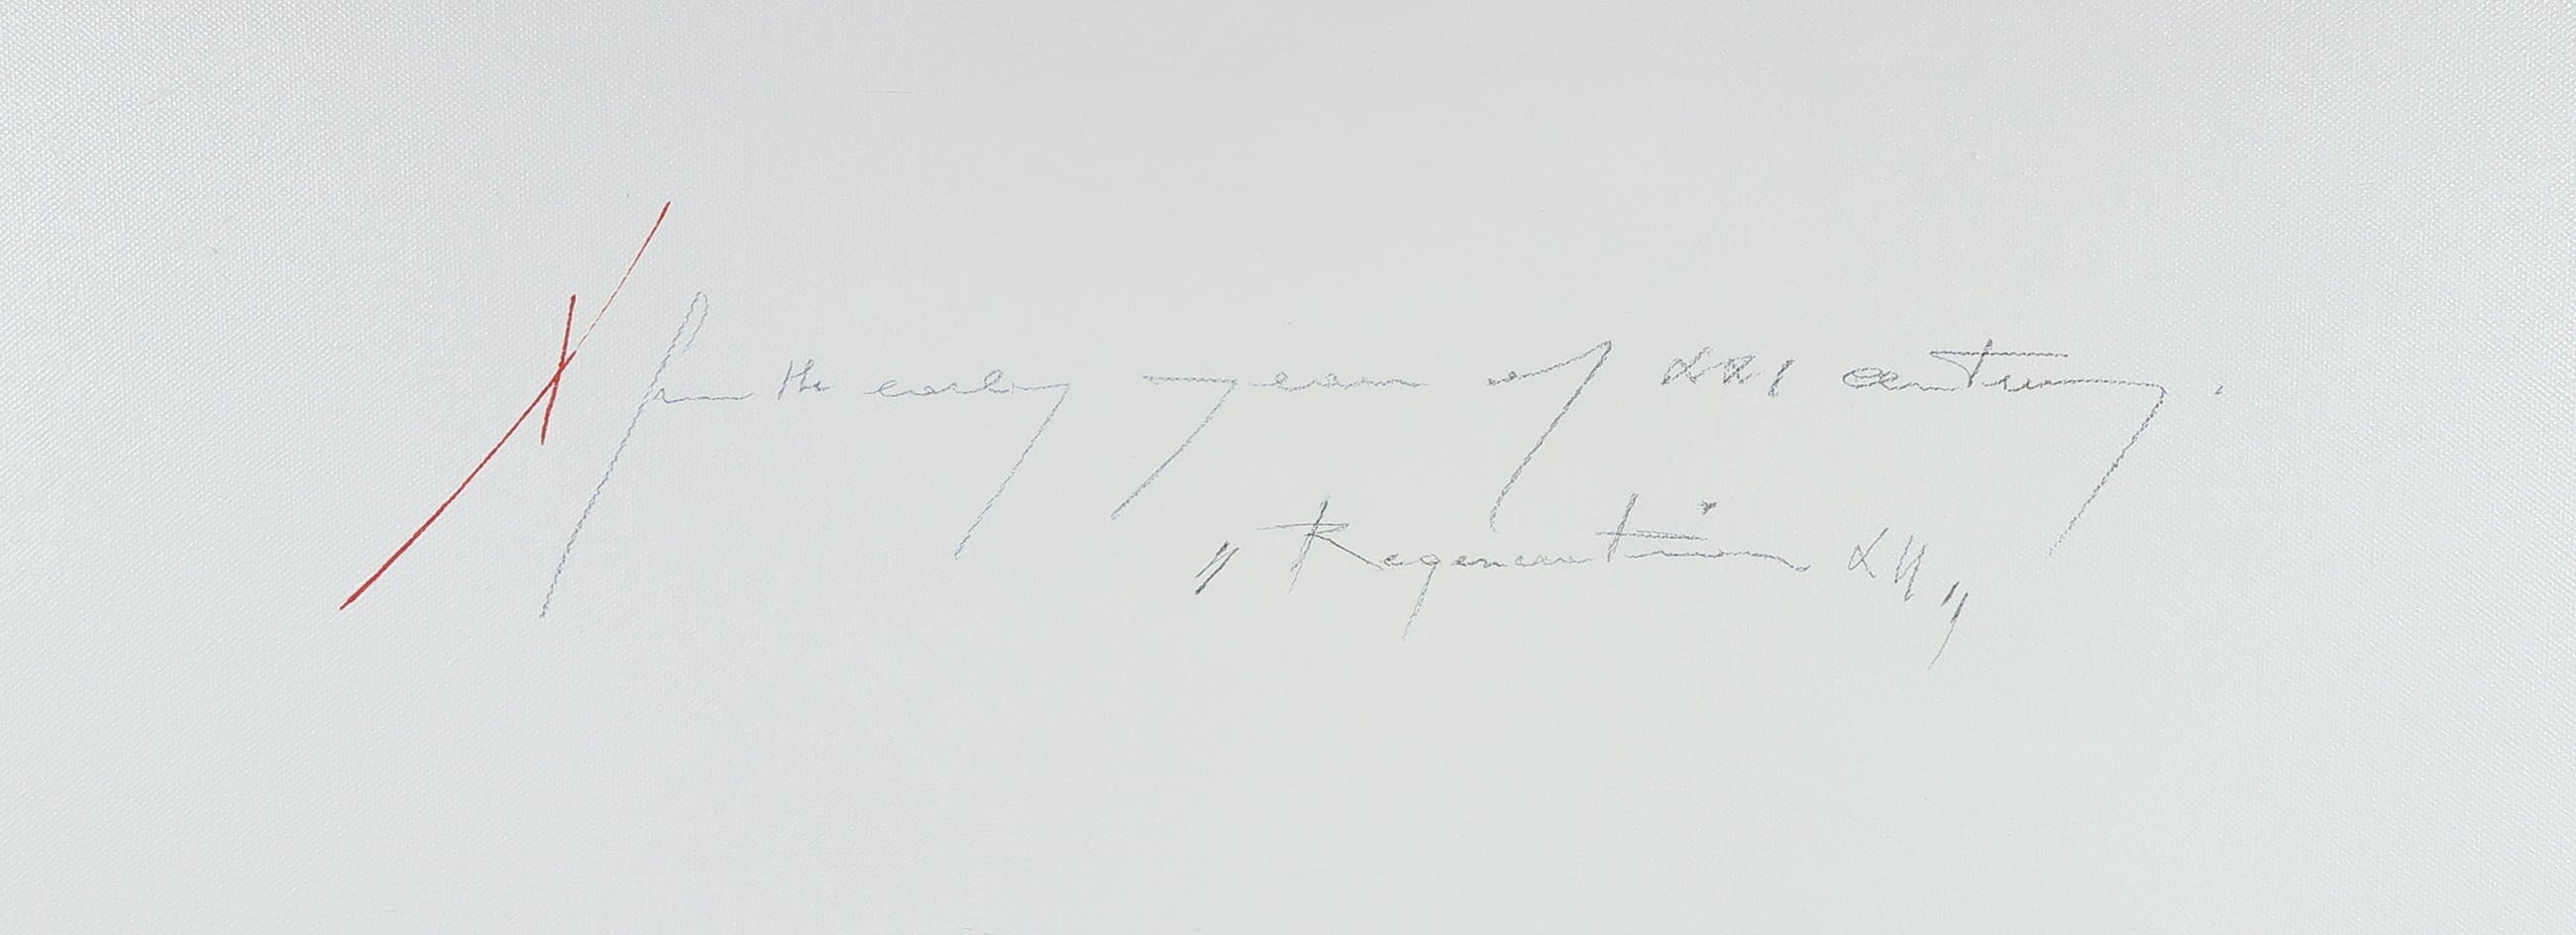 from the early years of XXI century.
"Regeneration XII"